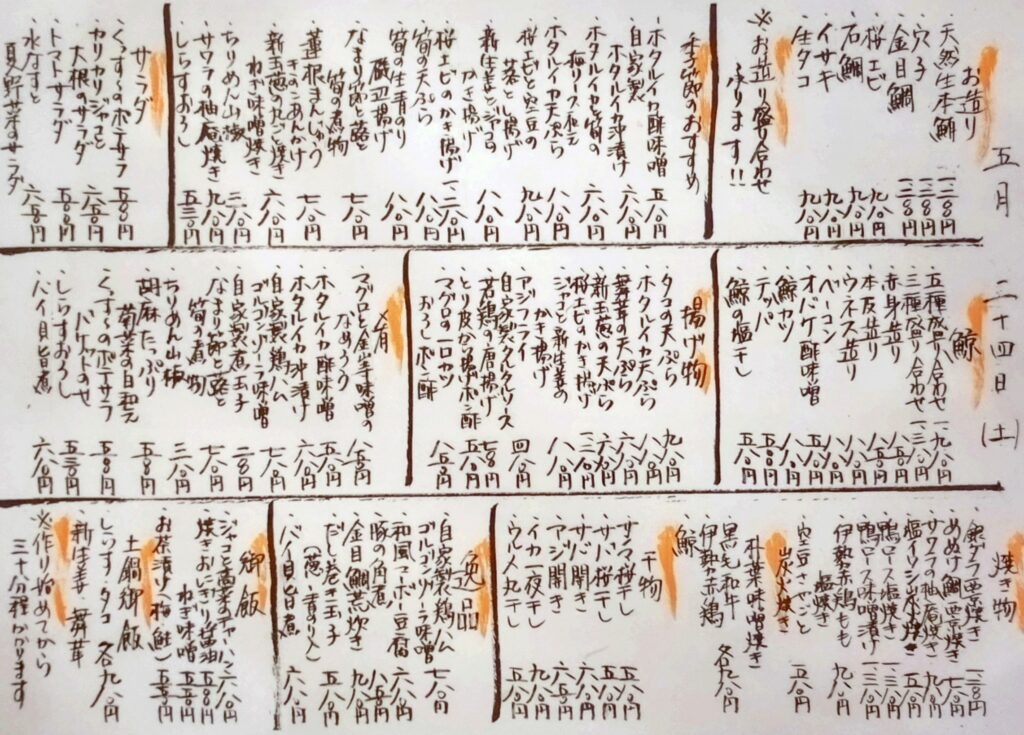 五月二十四日(土)
お造り
・天然生本鮪 一二八〇円
・穴子 一三八〇円
・金目鯛 一二八〇円
・桜エビ 九八〇円
・石鯛 九八〇円
・イサキ 九八〇円
・生タコ 九八〇円
※お造り盛り合わせ
承ります!!
季節のおすすめ
・ホタルイカ酢味噌 五八〇円
・自家製
ホタルイカ沖漬け 六八〇円
・ホタルイカと筍の
梅ソース和え
・ホタルイカ天ぷら
・桜エビと空豆の
・新生姜とジャコの
かき揚げ
・桜エビのかき揚げ 一二八〇円
・筍の天ぷら 八八〇円
・筍の生青のり
磯辺揚げ 八八〇円
・なまり節と蕗と
筍の煮物 七八〇円
・蓮根まんじゅう
きのこあんかけ 七八〇円
・新玉葱の丸ごと焼き
ねぎ味噌焼き 六八〇円
・ちりめん山椒 三八〇円
・サワラの柚庵焼き 九八〇円
・しらすおろし 五三〇円
サラダ
・くっす〜のポテサラ 五八〇円
・カリカリジャコと
大根のサラダ 六五〇円
・トマトサラダ 五八〇円
・水なすと
夏野菜のサラダ 六八〇円
鯨
・五種盛り合わせ 一九八〇円
・三種盛り合わせ 一三八〇円
・赤身造り
・本皮造り
・ウネス造り
・ベーコン
・オバケ酢味噌
・鯨カツ
・テッパ
・鯨の塩干し
揚げ物
・タコの天ぷら 九八〇円
・ホタルイカ天ぷら 八八〇円
・舞茸の天ぷら 六八〇円
・新玉葱の天ぷら 六八〇円
・桜エビのかき揚げ 一三八〇円
・ジャコと新生姜の
かき揚げ 八八〇円
・アジフライ
自家製タルタルソース 四八〇円
・若鶏の唐揚げ 七八〇円
・とり皮から揚げポン酢 五八〇円
・マグロの一口カツ
おろしポン酢 八五〇円
〆肴
・マグロと金山寺味噌の
なめろう 八五〇円
・ホタルイカ酢味噌 五八〇円
・ホタルイカ沖漬け 六八〇円
・自家製鶏ハム
ゴルゴンゾーラ味噌 七八〇円
・自家製煮玉子 二八〇円
・なまり節と蕗と
筍の煮物 七八〇円
・ちりめん山椒 三八〇円
・胡麻たっぷり
菊菜の白和え 五八〇円
・くっす〜のポテサラ
バケットのせ 五八〇円
・しらすおろし 五三〇円
・バイ貝旨煮 六八〇円
焼き物
・銀ダラ西京焼き 一二八〇円
・めぬけ鯛西京焼き 七八〇円
・サワラの柚庵焼き 九八〇円
・塩イワシ炭火焼き 五八〇円
・鴨ロース塩焼き 一一八〇円
・鴨ロース味噌漬け 一三八〇円
・伊勢赤鶏もも
塩焼き 九八〇円
・空豆さやごと
炭火焼き 五八〇円
朴葉味噌焼き
・黒毛和牛
・伊勢赤鶏
・鯨 各九八〇円
干物
・サンマ桜干し 五五〇円
・サバ桜干し 五八〇円
・サバ開き 六八〇円
・アジ開き 六五〇円
・イカ一夜干し 八八〇円
・ウルメ丸干し 五八〇円
逸品
・自家製鶏ハム
ゴルゴンゾーラ味噌 七八〇円
・和風マーボー豆腐 六八〇円
・豚の角煮 八五〇円
・金目鯛煮炊き 九八〇円
・だし巻き玉子
(葱・青のり入) 五八〇円
・バイ貝旨煮 六八〇円
御飯
・ジャコと高菜のチャーハン 六八〇円
・焼きおにぎり醤油 五五〇円
ねぎ味噌 五五〇円
・お茶漬け(梅・鮭) 五五〇円
土鍋御飯
・しらす・タコ 各九八〇円
・新生姜・舞茸
※作り始めてから
三十分程かかります